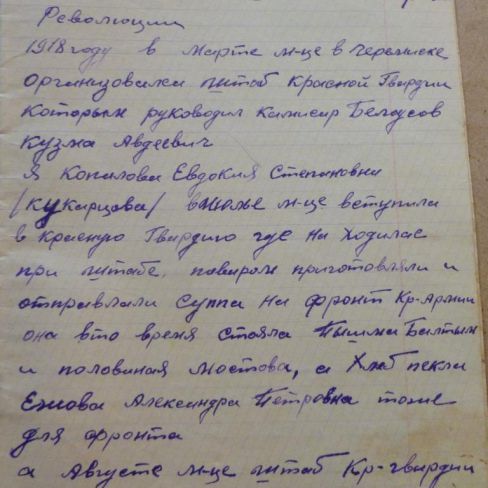 Революции
1918 году в марте м-це в Черемиске
организовался штаб красной Гвардии
которым руководил Камисир Белоусов
Кузма Авдеевич
Я Копилова Евдокия Степановна
/Кукарцова/ в июле м-це вступила
в красную Гвардию где на ходилас
при штабе, поваром приготовляли и
отправлали Суппа на фронт Кр-Армии
она вто время стояла Пышма Балтым
и половиная мостова, а Хлеб пекли
Ежова Александра Петровна тоже
для фронта
а Августе м-це штаб Кр-гвардии